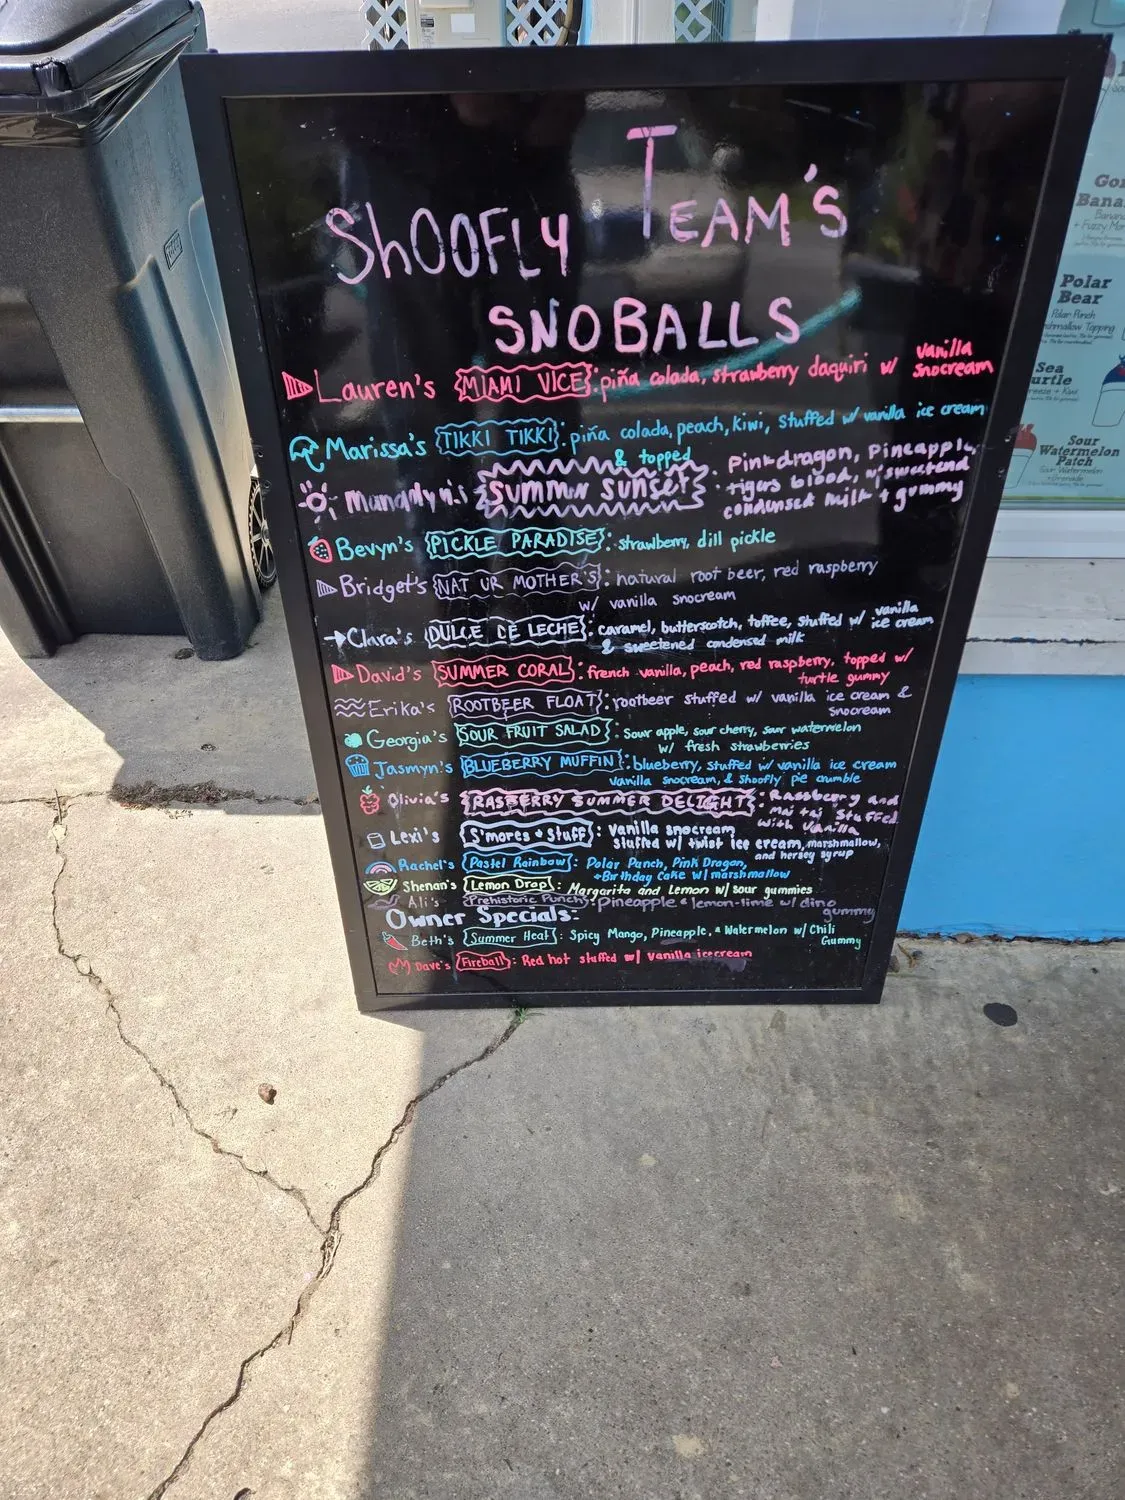 Shoofly Team's
SNOBALLS
Lauren's MIAMI VICE: piña colada, strawberry daquiri w/ vanilla
snocream
Marissa's TIKKI TIKKI: piña colada, peach, kiwi, stuffed w/ vanilla ice cream
& topped
Summer Sunset: Pink dragon, Pineapple,
tigers blood, w/ sweetend
condensed milk + gummy
Bevyn's PICKLE PARADISE: strawberry, dill pickle
Bridget's NAT UR MOTHER'S: natural root beer, red raspberry
w/ vanilla snocream
Clara's DULCE DE LECHE: caramel, butterscotch, toffee, stuffed w/ vanilla
ice cream
& sweetened condensed milk
David's SUMMER CORAL: french vanilla, peach, red raspberry, topped w/
turtle gummy
Erika's ROOTBEER FLOAT: rootbeer stuffed w/ vanilla ice cream &
snocream
Georgia's SOUR FRUIT SALAD: sour apple, sour cherry, sour watermelon
w/ fresh strawberries
Jasmyn's BLUEBERRY MUFFIN: blueberry, stuffed w/ vanilla ice cream
vanilla snocream, & shoofly pie crumble
Olivia's RASBERRY SUMMER DELIGHT: Rasberry and
Mai tai stuffed
with vanilla
Lexi's S'mores + Stuff: vanilla snocream
stuffed w/ twist ice cream, marshmallow,
and hersey syrup
Rachel's Pastel Rainbow: Polar Punch, Pink Dragon,
+Birthday Cake w/ marshmallow
Shenan's Lemon Drop: Margarita and Lemon w/ sour gummies
Ali's Prehistoric Punch: Pineapple & lemon-lime w/ dino
gummy
Owner Specials:
Beth's Summer Heat: Spicy Mango, Pineapple, & Watermelon w/ Chili
Gummy
Dave's Fireball: Red hot stuffed w/ vanilla icecream
Polar
Bear
Polar Punch
Sea
Sour
Watermelon
Patch
Sour Watermelon